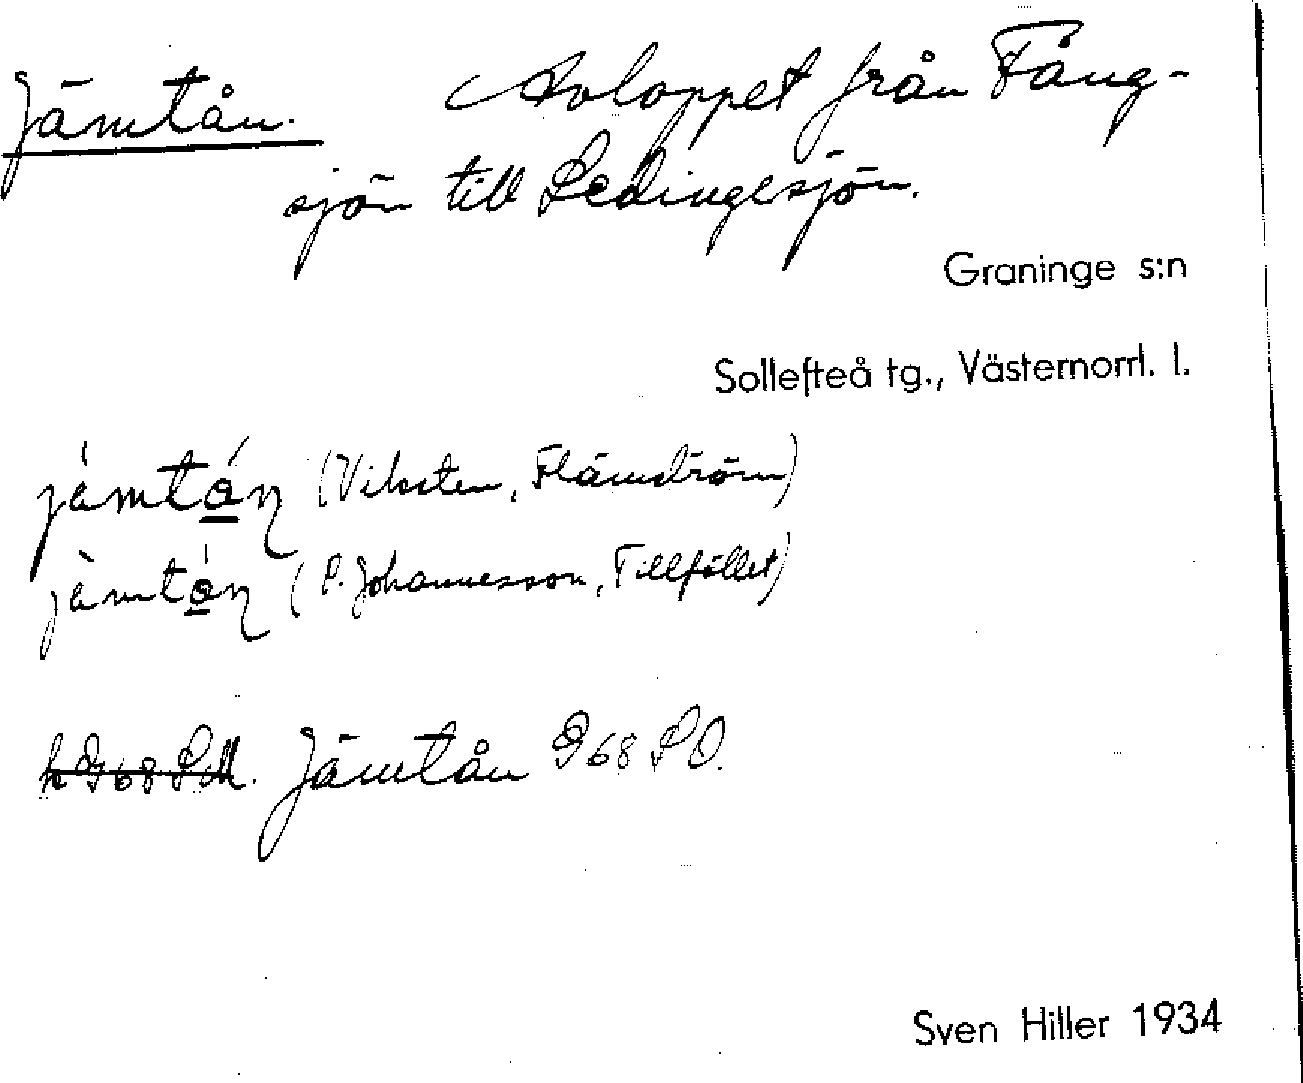 Jämtån. Avloppet från Fång-
sjön till Ledingesjön.
Graninge s:n
Sollefteå tg., Västernorrl. l.
jämtán (Viksten, Flåmström)
jämtán (P. Johannesson, Tillfället)
h G 68 SM. Jämtån G 68 SO.
Sven Hiller 1934